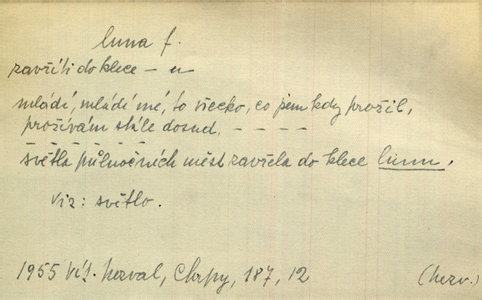 luna f.
zavříti do klece – u
mládí, mládí mé, to všecko, co jsem kdy prožil,
prožívám stále dosud. – – – –
– – – – – –
světla půlnočních měst zavřela do klece lunu.
viz: světlo.
1955 Vít. Nezval, Chrpy, 187, 12
(Nezv.)